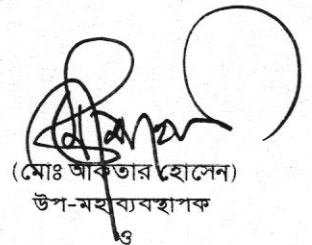 (মোঃ আকতার হোসেন)
উপ-মহাব্যবস্থাপক
ও